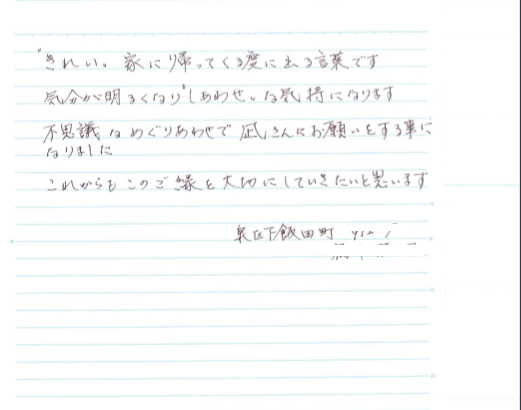 "きれい。家に帰ってくる度に出る言葉です
気分が明るくなり"しあわせ。な気持になります
不思議なめぐりあわせで凪さんにお願いをする事に
なりました
これからもこのご縁を大切にしていきたいと思います
泉区下飯田町